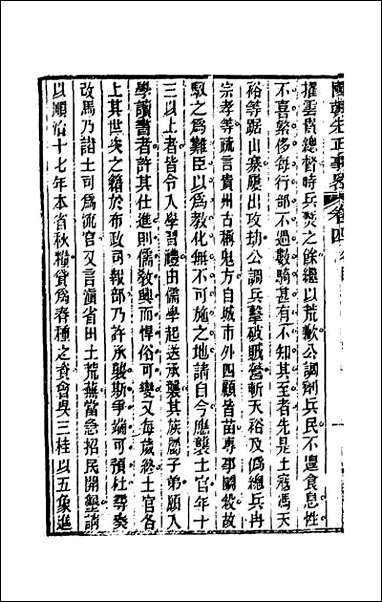 國朝先正事略 卷四 名臣
擢雲貴總督時兵燹之餘繼以荒歉公調劑兵民不遑食息性
不喜繁侈每行部不過數騎甚有不知其至者先是土寇馮天
裕等踞山寨屢出攻劫公調兵擊破賊營斬天裕及僞總兵冉
宗孝等疏言貴州古稱鬼方自城市外四顧皆苗専事鬭殺故
馭之爲難臣以爲敎化無不可施之地請自今應襲土官年十
三以上者皆令入學習禮由儒學起送承襲其族屬子弟願入
學讀書者許其仕進則儒敎興而悍俗可變又每歲終土官各
上其世系之籍於布政司報部乃許承襲斯爭端可預杜尋奏
改馬乃諸土司爲流官又言滇省田土荒蕪當急招民開墾請
以順治十七年本省秋糧貸爲春種之資會吳三桂以五象進